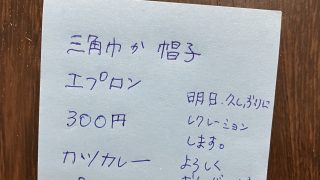 三角巾か帽子
エプロン
300円
カツカレー
明日.久しぶりに
レクレーション
します。
よろしく